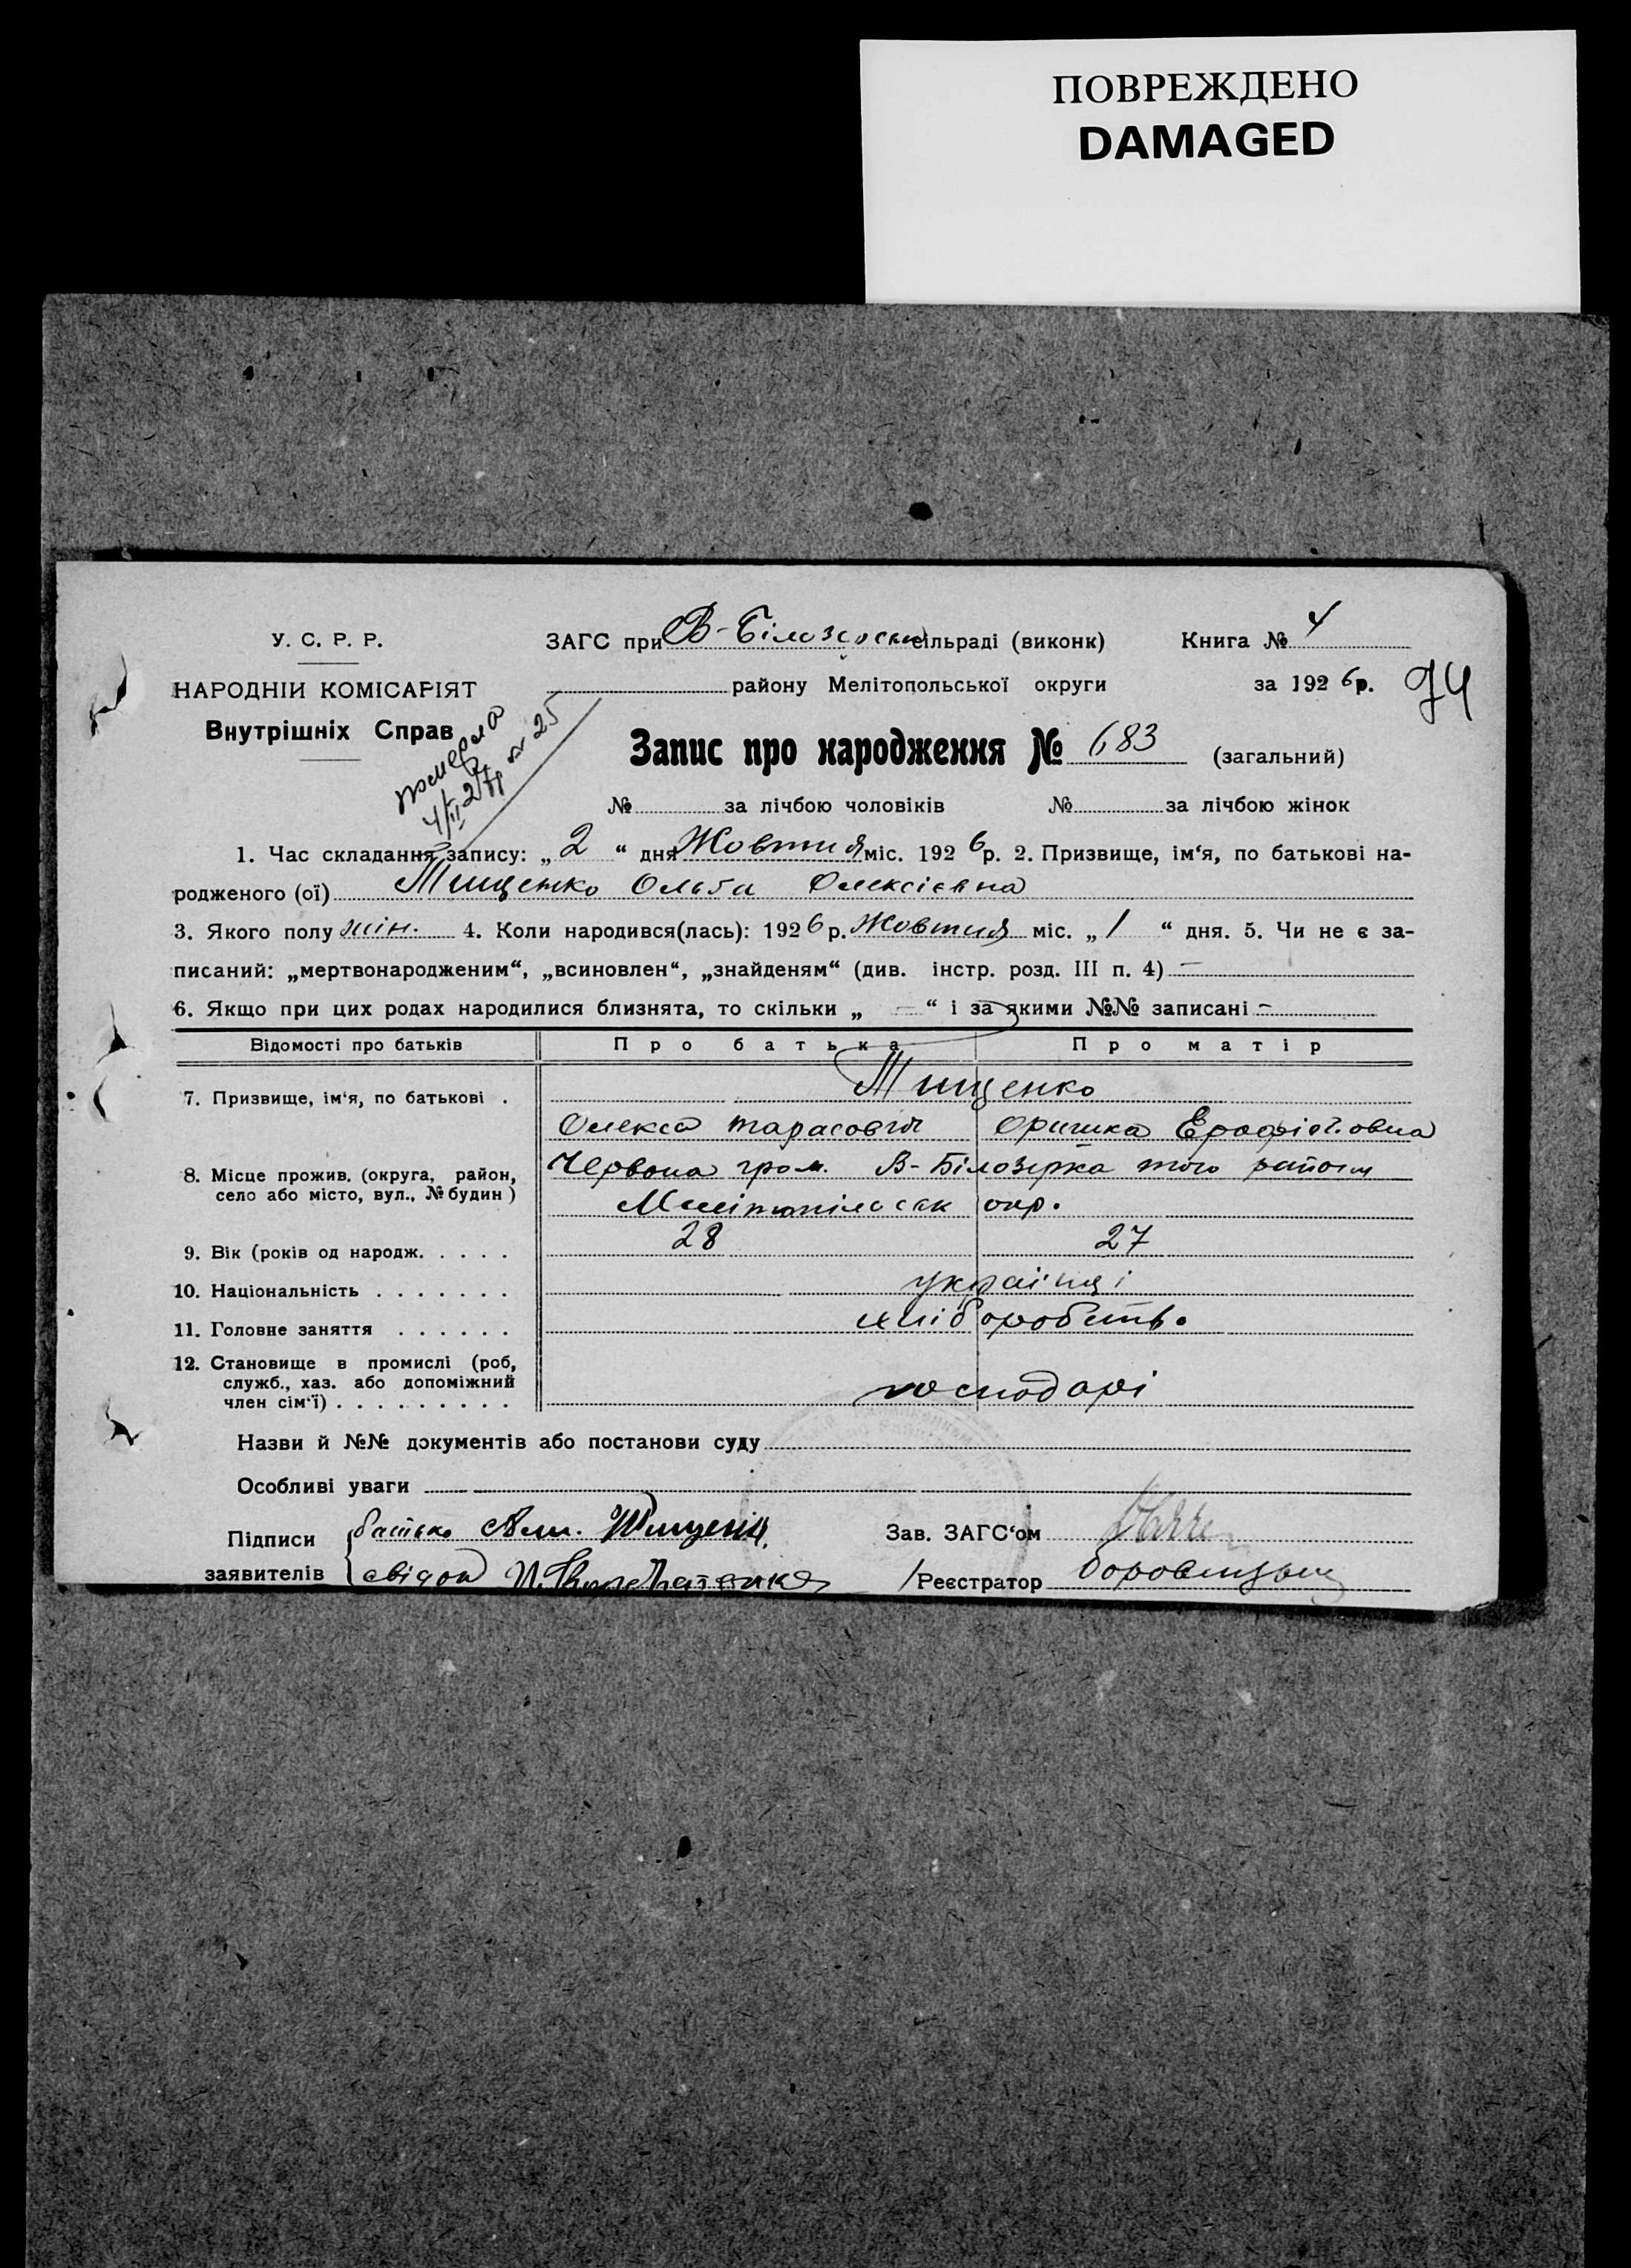 ПОВРЕЖДЕНО
DAMAGED
У. С. Р. Р.
НАРОДНІЙ КОМІСАРІЯТ
Внутрішніх Справ
померла
№ 25
ЗАГС при В-Білозерськ сільраді (виконк) Книга № 4
району Мелітопольської округи за 1926р.
94
Запис про народження № 683 (загальний)
№ за лічбою чоловіків № за лічбою жінок
1. Час складання запису: „2“ дня Жовтня міс. 1926р. 2. Призвище, ім‘я, по батькові на-
родженого (ої) Тищенко Ольга Олексієвна
3. Якого полу жін. 4. Коли народився(лась): 1926р. Жовтня міс. „1“ дня. 5. Чи не є за-
писаний: „мертвонародженим“, „всиновлен“, „знайденям“ (див. інстр. розд. III п. 4) —
6. Якщо при цих родах народилися близнята, то скільки „—“ і за якими №№ записані —
Відомості про батьків Про батька Про матір
7. Призвище, ім‘я, по батькові . Тищенко
Олекса Тарасович Оришка
8. Місце прожив. (округа, район,
село або місто, вул., № будин)
Червона гром. В-Білозірка того району
Мелітопільськ окр.
9. Вік (років од народж. . . . . 28 27
10. Національність . . . . . . . українці
11. Головне заняття . . . . . . хліборобств.
12. Становище в промислі (роб,
служб., хаз. або допоміжний
член сім‘ї) . . . . . . . . . господарі
Назви й №№ документів або постанови суду
Особливі уваги
Підписи
заявителів
батько Ал. Тищенко
свідок
Зав. ЗАГС‘ом
/Реєстратор